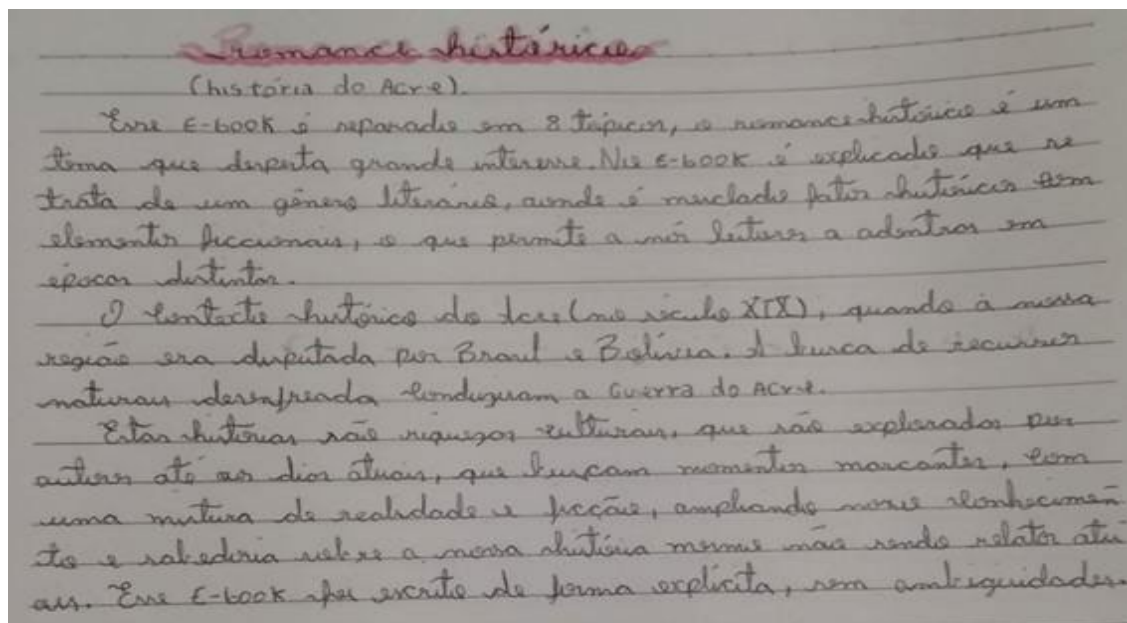 romance histórico
(história do Acre).
Esse E-book é separado em 8 tópicos, o romance histórico é um
tema que desperta grande interesse. No E-book é explicado que se
trata de um gênero literário, aonde é mesclado fatos históricos com
elementos ficcionais, o que permite a nós leitores a adentrar em
épocas distintas.
O contexto histórico do Acre (no século XIX), quando à nossa
região era disputada por Brasil e Bolívia. A busca de recursos
naturais desenfreada conduziram a Guerra do Acre.
Estas histórias são riquezas culturais, que são explorados por
autores até os dias atuais, que buscam momentos marcantes, com
uma mistura de realidade e ficção, ampliando nosso conhecimen
to e sabedoria sobre a nossa história mesmo não sendo relatos atu
ais. Esse E-book foi escrito de forma explícita, sem ambiguidades.